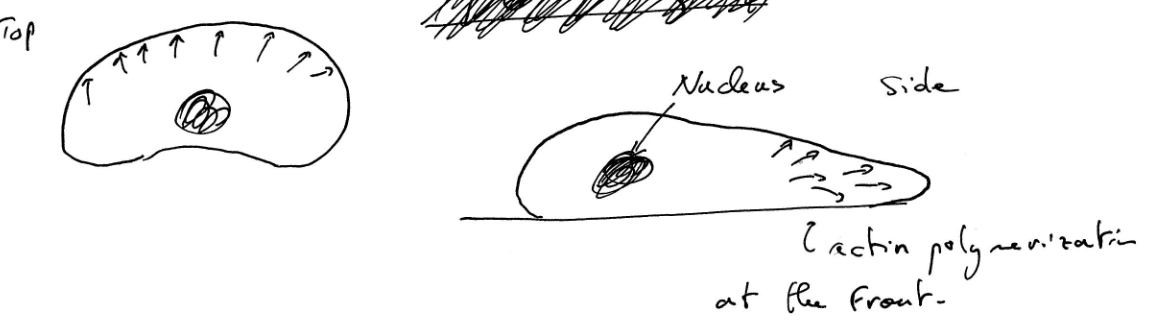 Top
Nucleus
Side
actin polymerization
at the front.